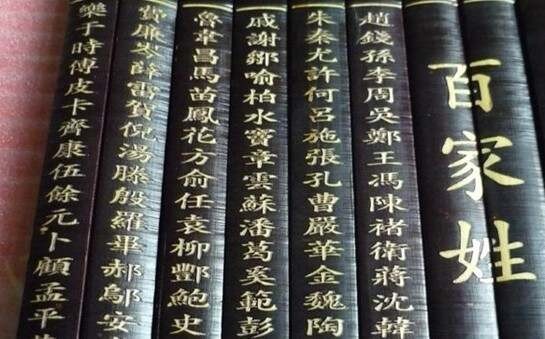 百家姓
趙錢孫李周吳鄭王馮陳褚衛蔣沈韓
朱秦尤許何呂施張孔曹嚴華金魏陶
戚謝鄒喻柏水竇章雲蘇潘葛奚範彭
魯韋昌馬苗鳳花方俞任袁柳酆鮑史
費廉岑薛雷賀倪湯滕殷羅畢郝鄔安
樂于時傅皮卞齊康伍餘元卜顧孟平